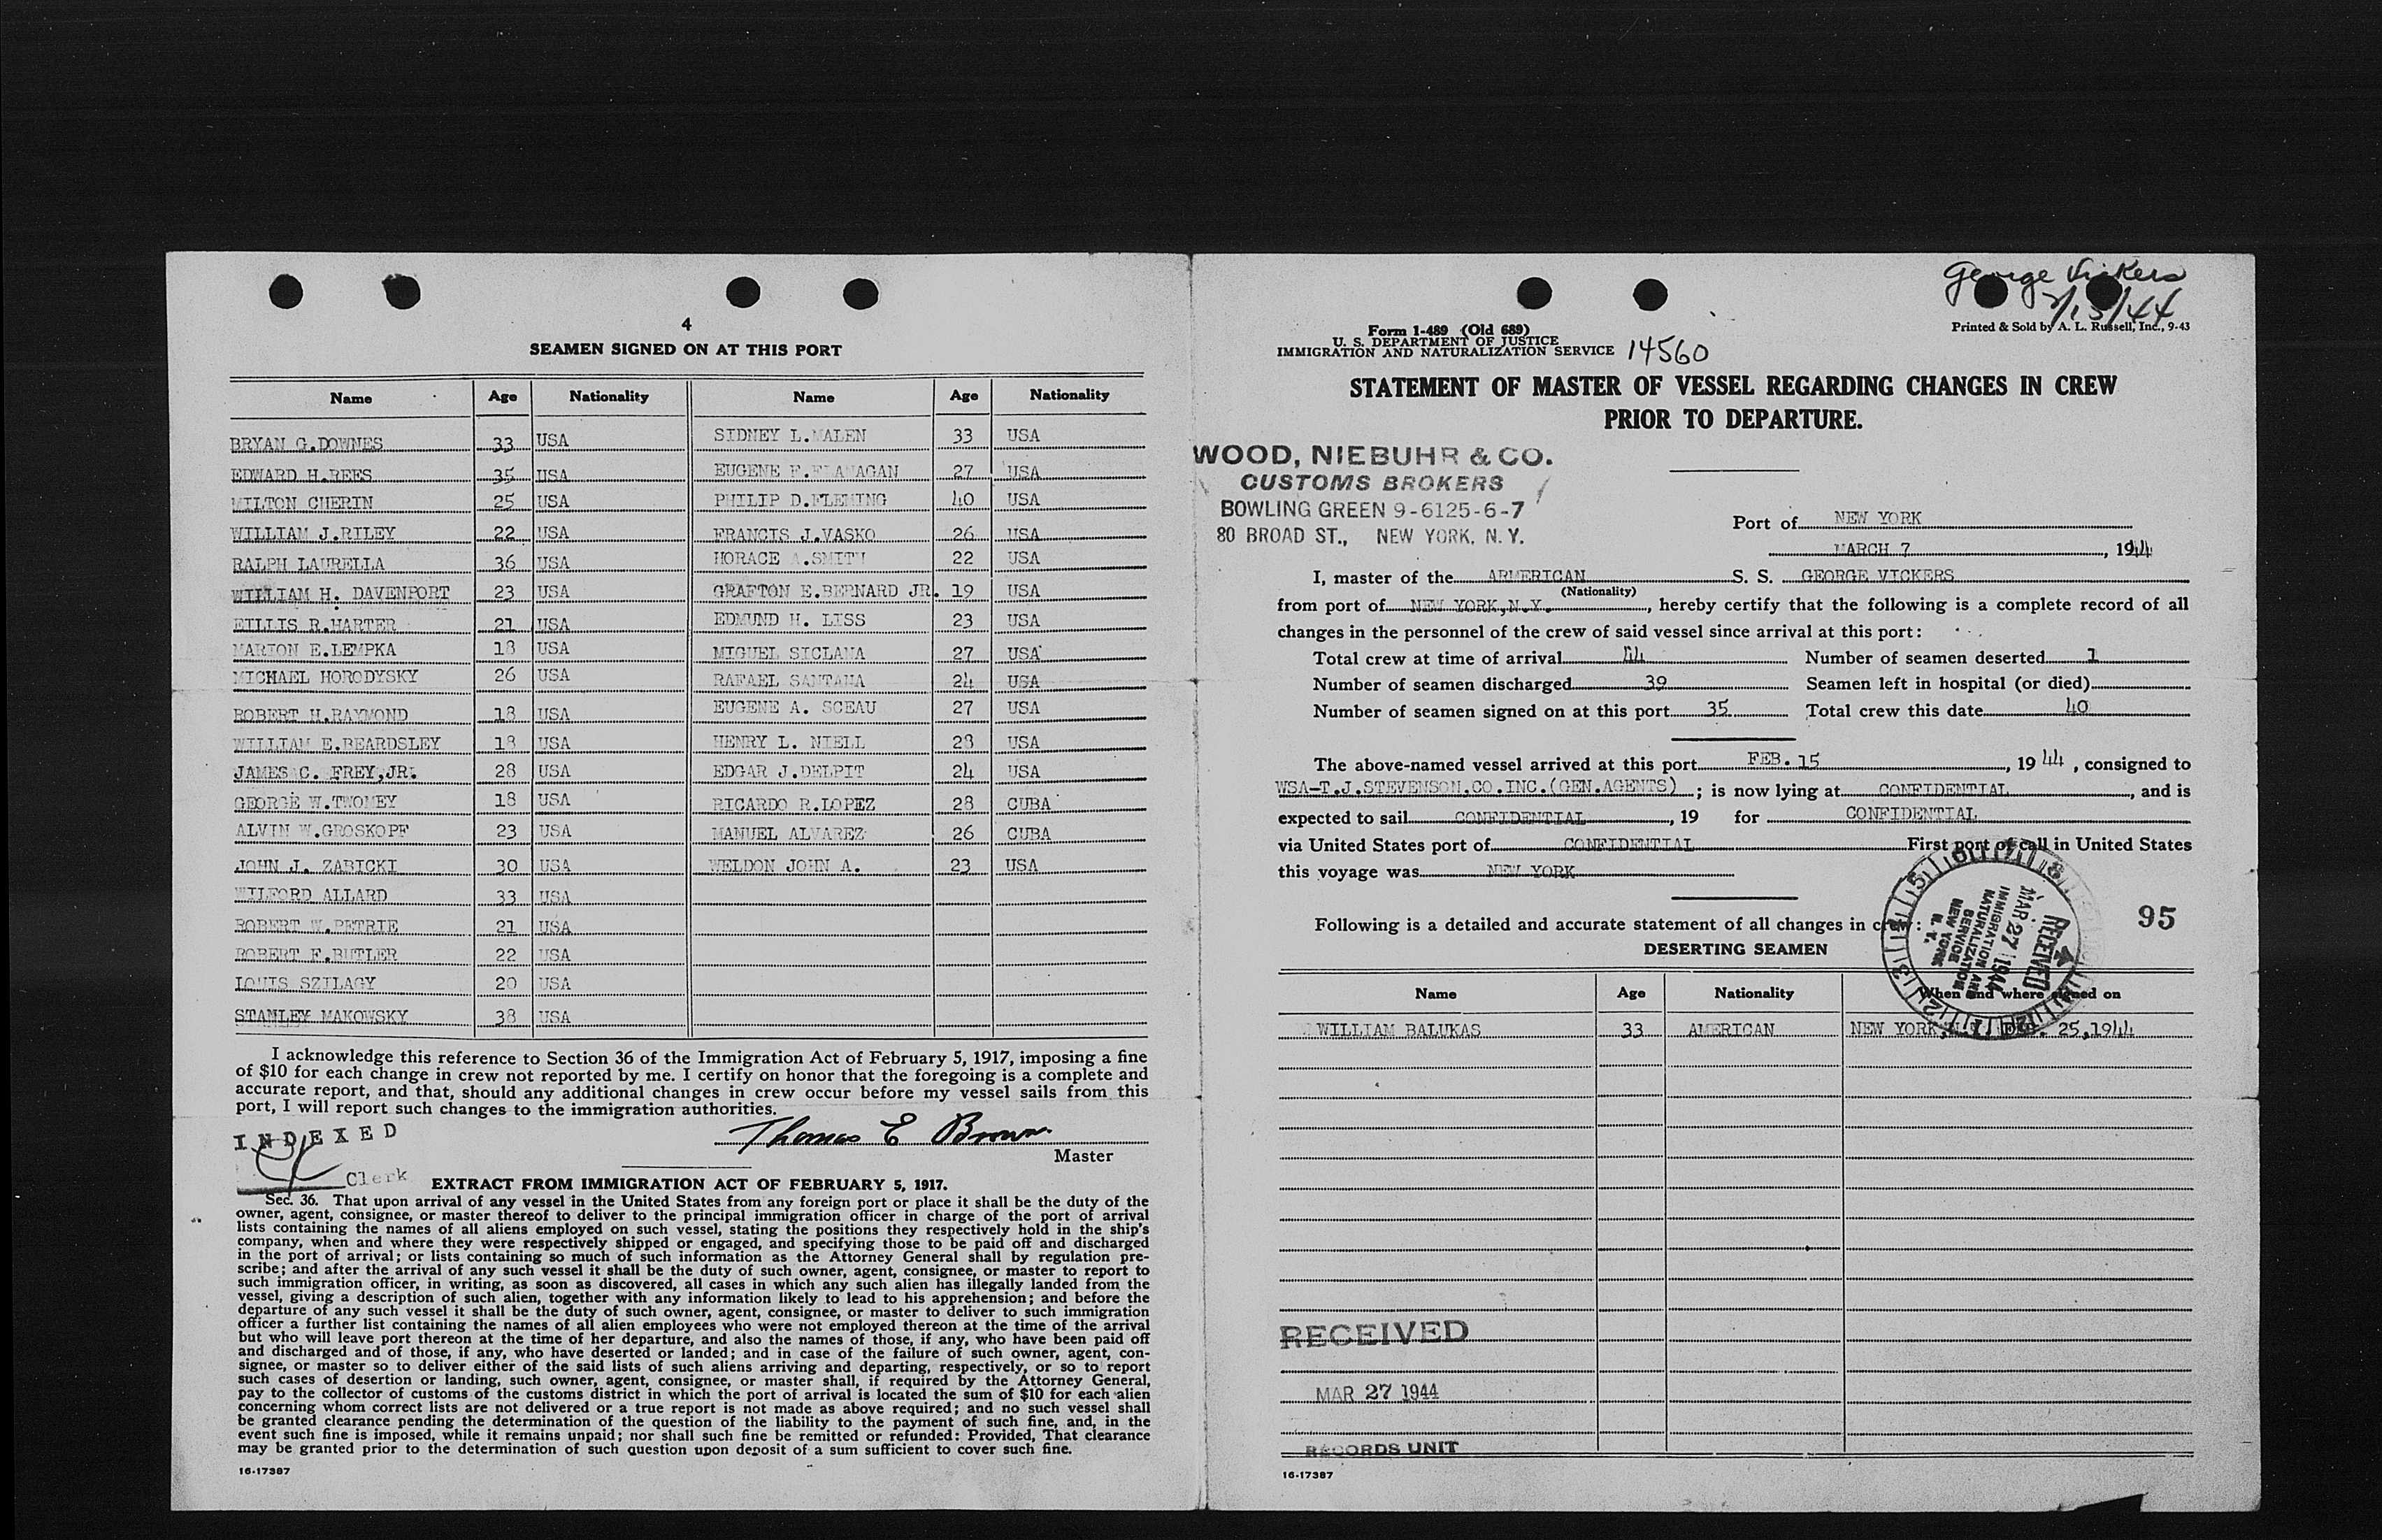 4
SEAMEN SIGNED ON AT THIS PORT
Name Age Nationality Name Age Nationality
BRYAN G.DOWNES 33 USA SIDNEY L. 33 USA
EDWARD H.REES 35 USA EUGENE F.FLANAGAN 27 USA
MILTON CHERIN 25 USA PHILIP D.FLEMING 40 USA
WILLIAM J.RILEY 22 USA FRANCIS J.VASKO 26 USA
RALPH LAURELLA 36 USA HORACE A.SMITH 22 USA
WILLIAM H. DAVENPORT 23 USA GRAFTON E.BERNARD JR. 19 USA
EILLIS R.HARTER 21 USA EDMUND H. LISS 23 USA
MARION E.LEMPKA 18 USA MIGUEL SICLANA 27 USA
MICHAEL HORODYSKY 26 USA RAFAEL SANTANA 24 USA
ROBERT H.RAYMOND 18 USA EUGENE A. SCEAU 27 USA
WILLIAM E.BEARDSLEY 18 USA HENRY L. NIELL 28 USA
JAMES C. FREY,JR. 28 USA EDGAR J.DELPIT 24 USA
GEORGE W.TWOMEY 18 USA RICARDO R.LOPEZ 28 CUBA
ALVIN W.GROSKOPF 23 USA MANUEL ALVAREZ 26 CUBA
JOHN J. ZABICKI 30 USA WELDON JOHN A. 23 USA
WILFORD ALLARD 33 USA
ROBERT W.PETRIE 21 USA
ROBERT F.BUTLER 22 USA
LOUIS SZILAGY 20 USA
STANLEY MAKOWSKY 38 USA
I acknowledge this reference to Section 36 of the Immigration Act of February 5, 1917, imposing a fine
of $10 for each change in crew not reported by me. I certify on honor that the foregoing is a complete and
accurate report, and that, should any additional changes in crew occur before my vessel sails from this
port, I will report such changes to the immigration authorities.
INDEXED
Thomas E Brown
Master
Clerk
EXTRACT FROM IMMIGRATION ACT OF FEBRUARY 5, 1917.
Sec. 36. That upon arrival of any vessel in the United States from any foreign port or place it shall be the duty of the
owner, agent, consignee, or master thereof to deliver to the principal immigration officer in charge of the port of arrival
lists containing the names of all aliens employed on such vessel, stating the positions they respectively hold in the ship's
company, when and where they were respectively shipped or engaged, and specifying those to be paid off and discharged
in the port of arrival; or lists containing so much of such information as the Attorney General shall by regulation pre-
scribe; and after the arrival of any such vessel it shall be the duty of such owner, agent, consignee, or master to report to
such immigration officer, in writing, as soon as discovered, all cases in which any such alien has illegally landed from the
vessel, giving a description of such alien, together with any information likely to lead to his apprehension; and before the
departure of any such vessel it shall be the duty of such owner, agent, consignee, or master to deliver to such immigration
officer a further list containing the names of all alien employees who were not employed thereon at the time of the arrival
but who will leave port thereon at the time of her departure, and also the names of those, if any, who have been paid off
and discharged and of those, if any, who have deserted or landed; and in case of the failure of such owner, agent, con-
signee, or master so to deliver either of the said lists of such aliens arriving and departing, respectively, or so to report
such cases of desertion or landing, such owner, agent, consignee, or master shall, if required by the Attorney General,
pay to the collector of customs of the customs district in which the port of arrival is located the sum of $10 for each alien
concerning whom correct lists are not delivered or a true report is not made as above required; and no such vessel shall
be granted clearance pending the determination of the question of the liability to the payment of such fine, and, in the
event such fine is imposed, while it remains unpaid; nor shall such fine be remitted or refunded: Provided, That clearance
may be granted prior to the determination of such question upon deposit of a sum sufficient to cover such fine.
16-17387
George Vickers
2/15/44
Printed & Sold by A. L. Russell, Inc., 9-43
Form 1-489 (Old 689)
U. S. DEPARTMENT OF JUSTICE
IMMIGRATION AND NATURALIZATION SERVICE 14560
STATEMENT OF MASTER OF VESSEL REGARDING CHANGES IN CREW
PRIOR TO DEPARTURE.
WOOD, NIEBUHR & CO.
CUSTOMS BROKERS
BOWLING GREEN 9-6125-6-7
80 BROAD ST., NEW YORK, N. Y.
Port of NEW YORK
MARCH 7, 1944
I, master of the ARMERICAN S. S. GEORGE VICKERS
(Nationality)
from port of NEW YORK,N.Y., hereby certify that the following is a complete record of all
changes in the personnel of the crew of said vessel since arrival at this port:
Total crew at time of arrival 44 Number of seamen deserted 1
Number of seamen discharged 39 Seamen left in hospital (or died)
Number of seamen signed on at this port 35 Total crew this date 40
The above-named vessel arrived at this port FEB. 15, 1944, consigned to
WSA-T.J.STEVENSON.CO.INC.(GEN.AGENTS); is now lying at CONFIDENTIAL, and is
expected to sail CONFIDENTIAL, 19 for CONFIDENTIAL
via United States port of CONFIDENTIAL First port of call in United States
this voyage was NEW YORK
Following is a detailed and accurate statement of all changes in crew:
95
DESERTING SEAMEN
RECEIVED
MAR 27 1944
IMMIGRATION AND
NATURALIZATION
SERVICE
NEW YORK
N. Y.
Name Age Nationality When and where signed on
WILLIAM BALUKAS 33 AMERICAN NEW YORK, 25,1944
RECEIVED
MAR 27 1944
RECORDS UNIT
16-17387